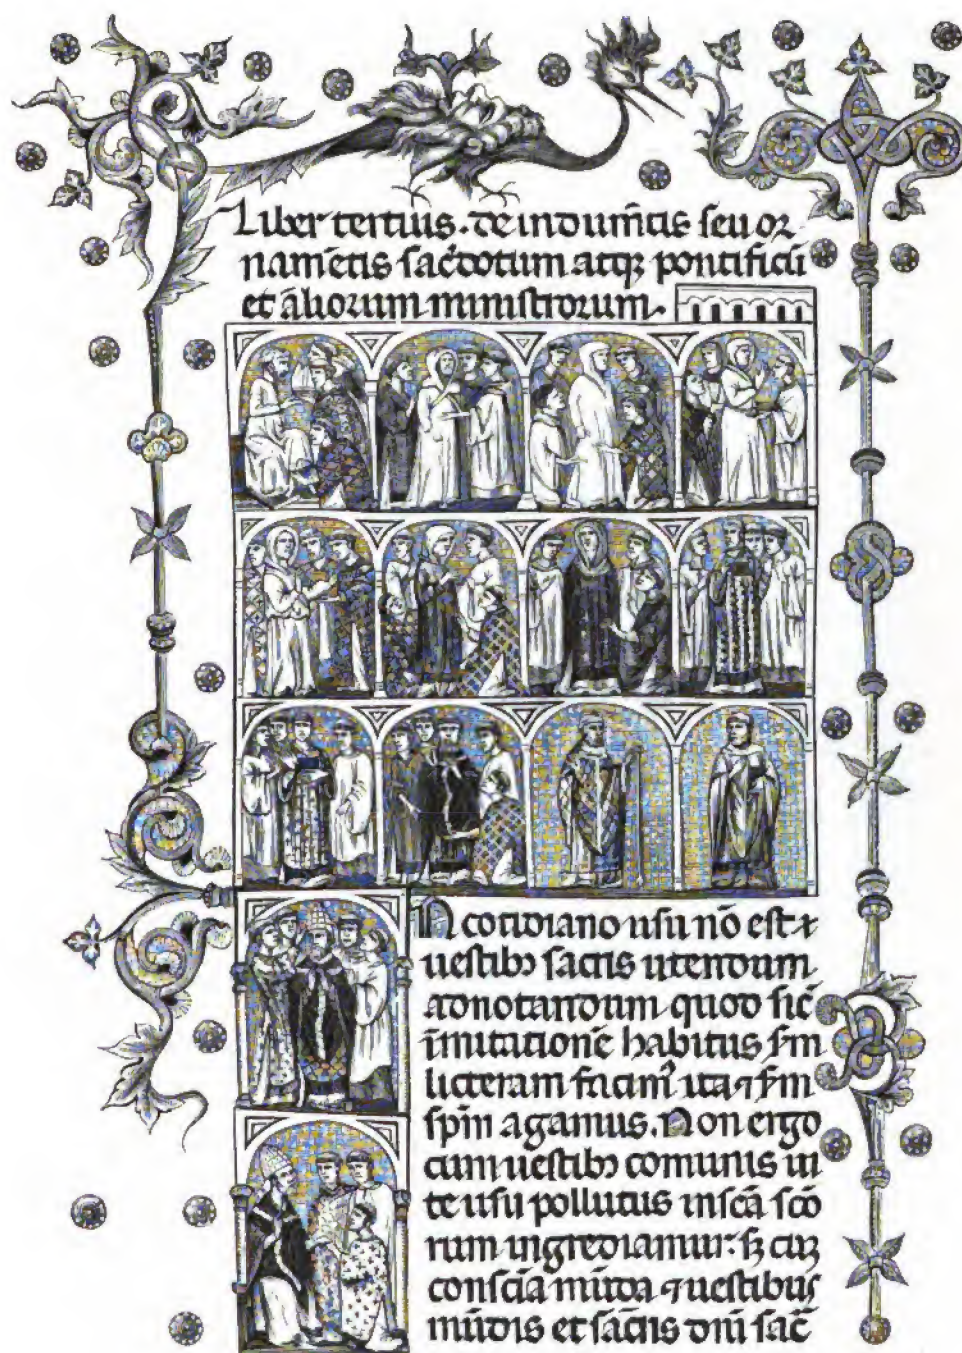 Liber tertius. de indum̄tis seu or
nam̄etis sac̓dotum atqꝫ pontificū
et alior̄um ministrorum.
N cotidiano usu nō est ⁊
uestibꝫ sacris utendum
adnotandum quod sic̄
īmutationē habitus s̄m
licteram facim᾽ ita ⁊ s̄m
sp̄m agamus. Non ergo
cum uestibꝫ comunis ui
te usu pollutus in sc̄a sc̄o
rum ingrediamur: sꝫ cuꝫ
consc̄ia mūda ⁊ uestibus
mūdis et sac̄is dn̄i sac̄